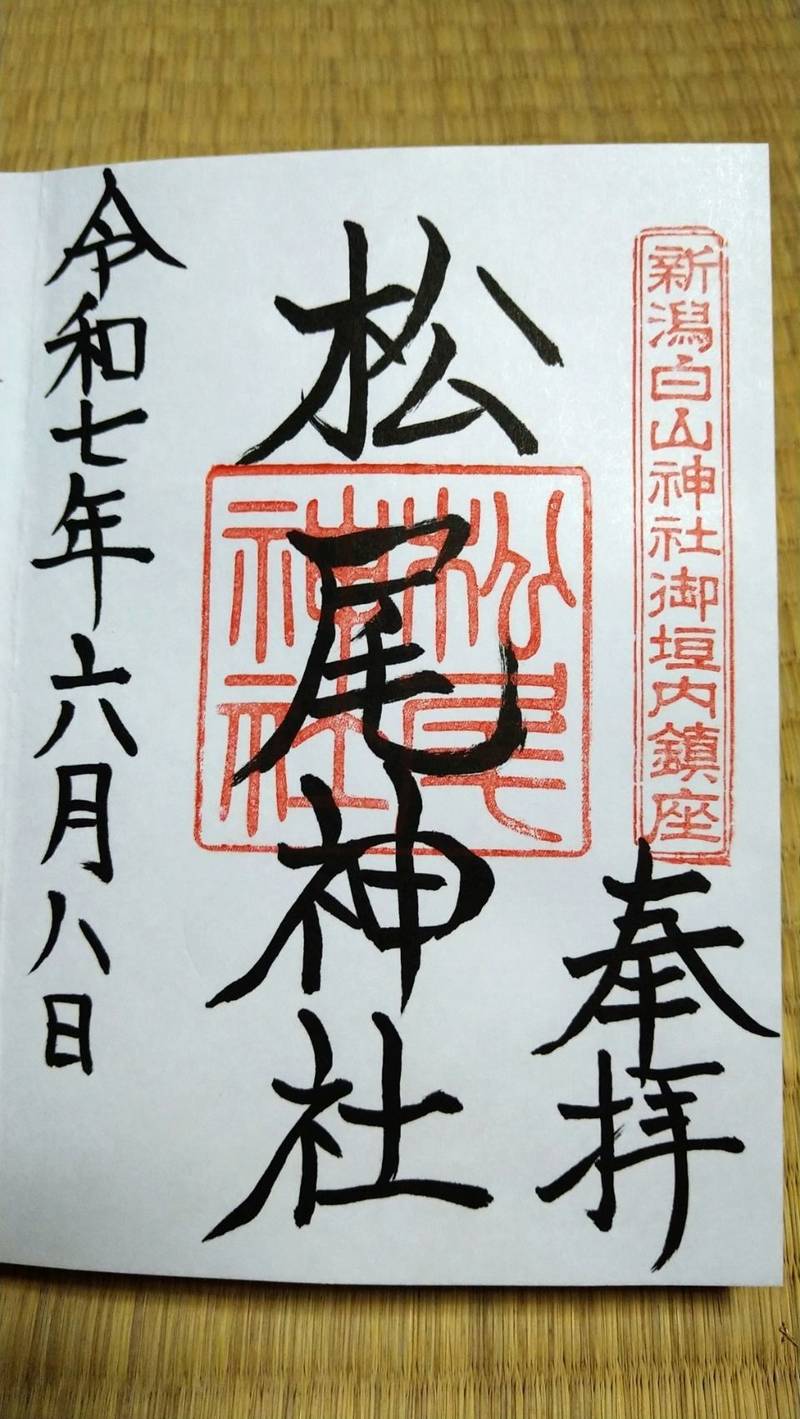 新潟白山神社御垣内鎮座
奉拝
松尾神社
松尾
神社
令和七年六月八日